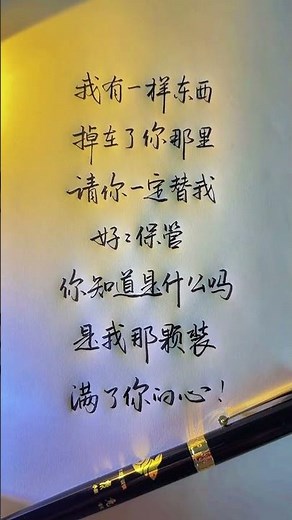 我有一样东西
掉在了你那里
请你一定替我
好好保管
你知道是什么吗
是我那颗装
满了你的心！